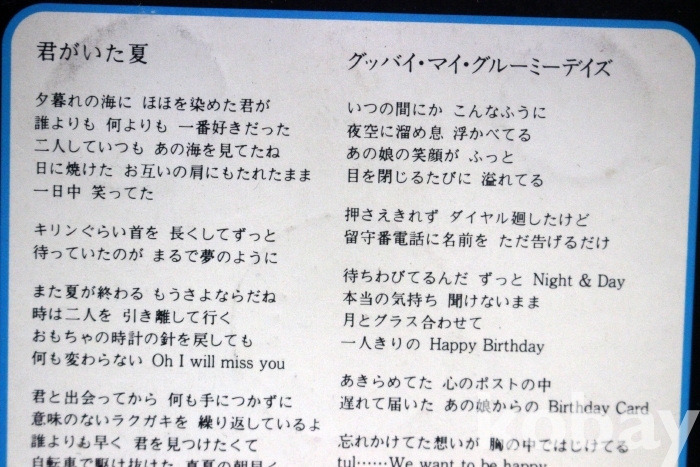 君がいた夏
夕暮れの海に ほほを染めた君が
誰よりも 何よりも 一番好きだった
二人していつも あの海を見てたね
日に焼けた お互いの肩にもたれたまま
一日中 笑ってた
キリンぐらい首を 長くしてずっと
待っていたのが まるで夢のように
また夏が終わる もうさよならだね
時は二人を 引き離して行く
おもちゃの時計の針を戻しても
何も変わらない Oh I will miss you
君と出会ってから 何も手につかずに
意味のないラクガキを 繰り返しているよ
誰よりも早く 君を見つけたくて
自転車で駆け抜けた 真夏の朝早く
グッバイ・マイ・グルーミーデイズ
いつの間にか こんなふうに
夜空に溜め息 浮かべてる
あの娘の笑顔が ふっと
目を閉じるたびに 溢れてる
押さえきれず ダイヤル廻したけど
留守番電話に名前を ただ告げるだけ
待ちわびてるんだ ずっと Night & Day
本当の気持ち 聞けないまま
月とグラス合わせて
一人きりの Happy Birthday
あきらめてた 心のポストの中
遅れて届いた あの娘からの Birthday Card
忘れかけてた想いが 胸の中ではじけてる
tul……We want to be happy